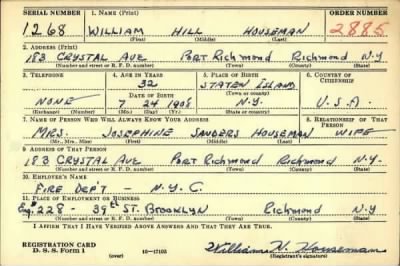 SERIAL NUMBER 1. NAME (Print) ORDER NUMBER
1268 WILLIAM HILL HOUSEMAN 2885
(First) (Middle) (Last)
2. ADDRESS (Print)
183 CRYSTAL AVE PORT RICHMOND RICHMOND N.Y
(Number and street or R. F. D. number) (Town) (County) (State)
3. TELEPHONE 4. AGE IN YEARS 5. PLACE OF BIRTH 6. COUNTRY OF CITIZENSHIP
32 STATEN ISLAND
DATE OF BIRTH (Town or county)
NONE 7 24 1908 N.Y. U.S.A.
(Exchange) (Number) (Mo.) (Day) (Yr.) (State or country)
7. NAME OF PERSON WHO WILL ALWAYS KNOW YOUR ADDRESS 8. RELATIONSHIP OF THAT PERSON
MRS. JOSEPHINE SANDERS HOUSEMAN WIFE
(Mr., Mrs., Miss) (First) (Middle) (Last)
9. ADDRESS OF THAT PERSON
183 CRYSTAL AVE PORT RICHMOND RICHMOND N.Y.
(Number and street or R. F. D. number) (Town) (County) (State)
10. EMPLOYER'S NAME
FIRE DEP'T - N.Y.C.
11. PLACE OF EMPLOYMENT OR BUSINESS
Eng. 228 - 39th ST. BROOKLYN RICHMOND N.Y.
(Number and street or R. F. D. number) (Town) (County) (State)
I AFFIRM THAT I HAVE VERIFIED ABOVE ANSWERS AND THAT THEY ARE TRUE.
REGISTRATION CARD
D. S. S. Form 1 16-17105 William H. Houseman
(over) (Registrant's signature)